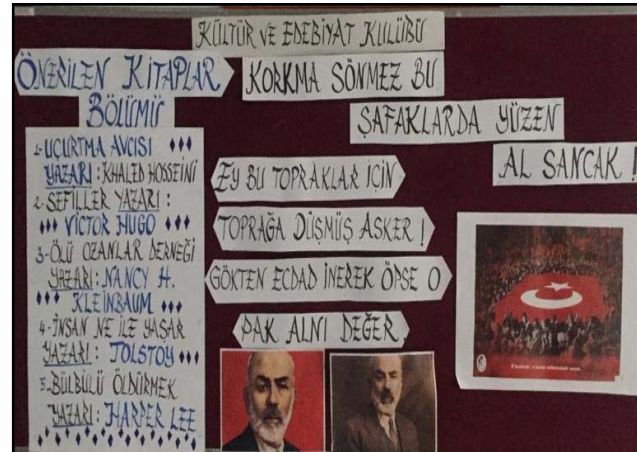 KÜLTÜR VE EDEBİYAT KULÜBÜ
ÖNERİLEN KİTAPLAR
BÖLÜMÜ
1-UÇURTMA AVCISI
YAZARI: KHALED HOSSEINI
2-SEFİLLER YAZARI:
VICTOR HUGO
3-ÖLÜ OZANLAR DERNEĞİ
YAZARI: NANCY H.
KLEINBAUM
4-İNSAN NE İLE YAŞAR
YAZARI: TOLSTOY
5-BÜLBÜLÜ ÖLDÜRMEK
YAZARI: HARPER LEE
KORKMA SÖNMEZ BU
ŞAFAKLARDA YÜZEN
AL SANCAK !
EY BU TOPRAKLAR İÇİN
TOPRAĞA DÜŞMÜŞ ASKER !
GÖKTEN ECDAD İNEREK ÖPSE O
PAK ALNI DEĞER